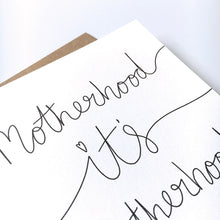 Motherhood
it's
therhood